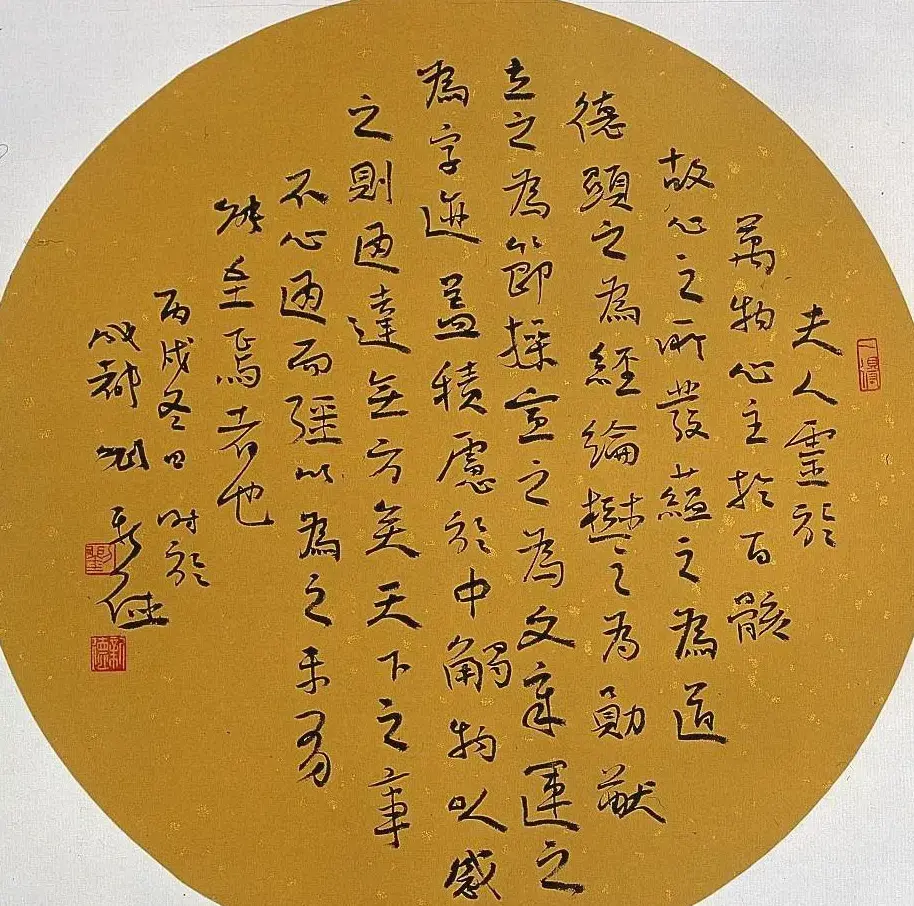 夫人靈於
萬物心主於百骸
故心之所發蘊之為道
德顯之為經綸樹之為勛猷
立之為節操宣之為文章運之
為字迹蓋積慮於中觸物以感
之則通達無方矣天下之事
不心通而彊以為之未有
能至焉者也
丙戌冬日時於
成都劉新德
劉
新德